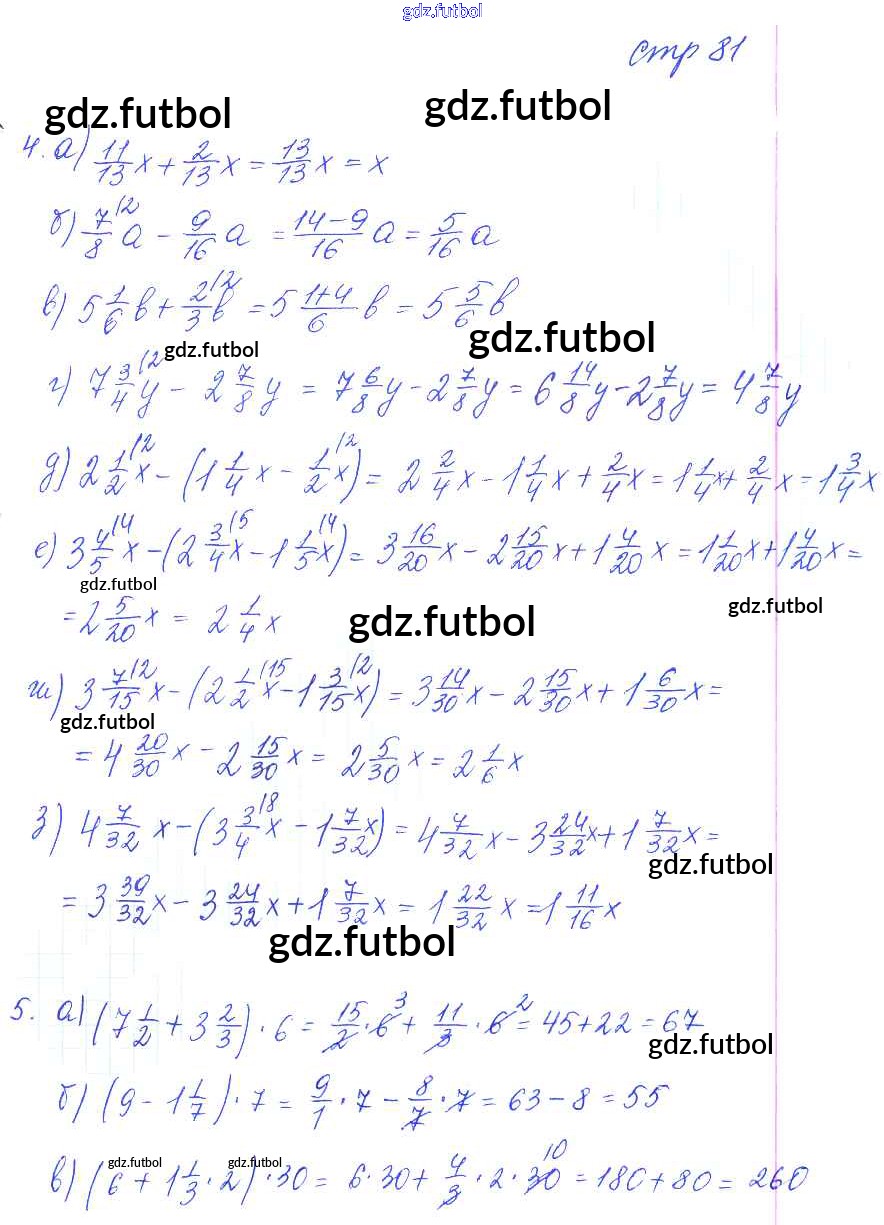 gdz.futbol
стр 81
gdz.futbol gdz.futbol
4. а) 11/13 x + 2/13 x = 13/13 x = x
б) 7/8 |2 a - 9/16 a = (14-9)/16 a = 5/16 a
в) 5 1/6 b + 2/3 |2 b = 5 (1+4)/6 b = 5 5/6 b
gdz.futbol
gdz.futbol
г) 7 3/4 |2 y - 2 7/8 y = 7 6/8 y - 2 7/8 y = 6 14/8 y - 2 7/8 y = 4 7/8 y
д) 2 1/2 |2 x - (1 1/4 x - 1/2 |2 x) = 2 2/4 x - 1 1/4 x + 2/4 x = 1 1/4 x + 2/4 x = 1 3/4 x
е) 3 4/5 |4 x - (2 3/4 |5 x - 1 1/5 |4 x) = 3 16/20 x - 2 15/20 x + 1 4/20 x = 1 1/20 x + 1 4/20 x =
gdz.futbol
gdz.futbol
= 2 5/20 x = 2 1/4 x
gdz.futbol
ж) 3 7/15 |2 x - (2 1/2 |15 x - 1 3/15 |2 x) = 3 14/30 x - 2 15/30 x + 1 6/30 x =
gdz.futbol
= 4 20/30 x - 2 15/30 x = 2 5/30 x = 2 1/6 x
з) 4 7/32 x - (3 3/4 |8 x - 1 7/32 x) = 4 7/32 x - 3 24/32 x + 1 7/32 x =
gdz.futbol
= 3 39/32 x - 3 24/32 x + 1 7/32 x = 1 22/32 x = 1 11/16 x
gdz.futbol
5. а) (7 1/2 + 3 2/3) · 6 = 15/2 · 6 3 + 11/3 · 6 2 = 45 + 22 = 67
gdz.futbol
б) (9 - 1 1/7) · 7 = 9/1 · 7 - 8/7 · 7 = 63 - 8 = 55
gdz.futbol gdz.futbol
в) (6 + 1 1/3 · 2) · 30 = 6 · 30 + 4/3 · 2 · 30 10 = 180 + 80 = 260